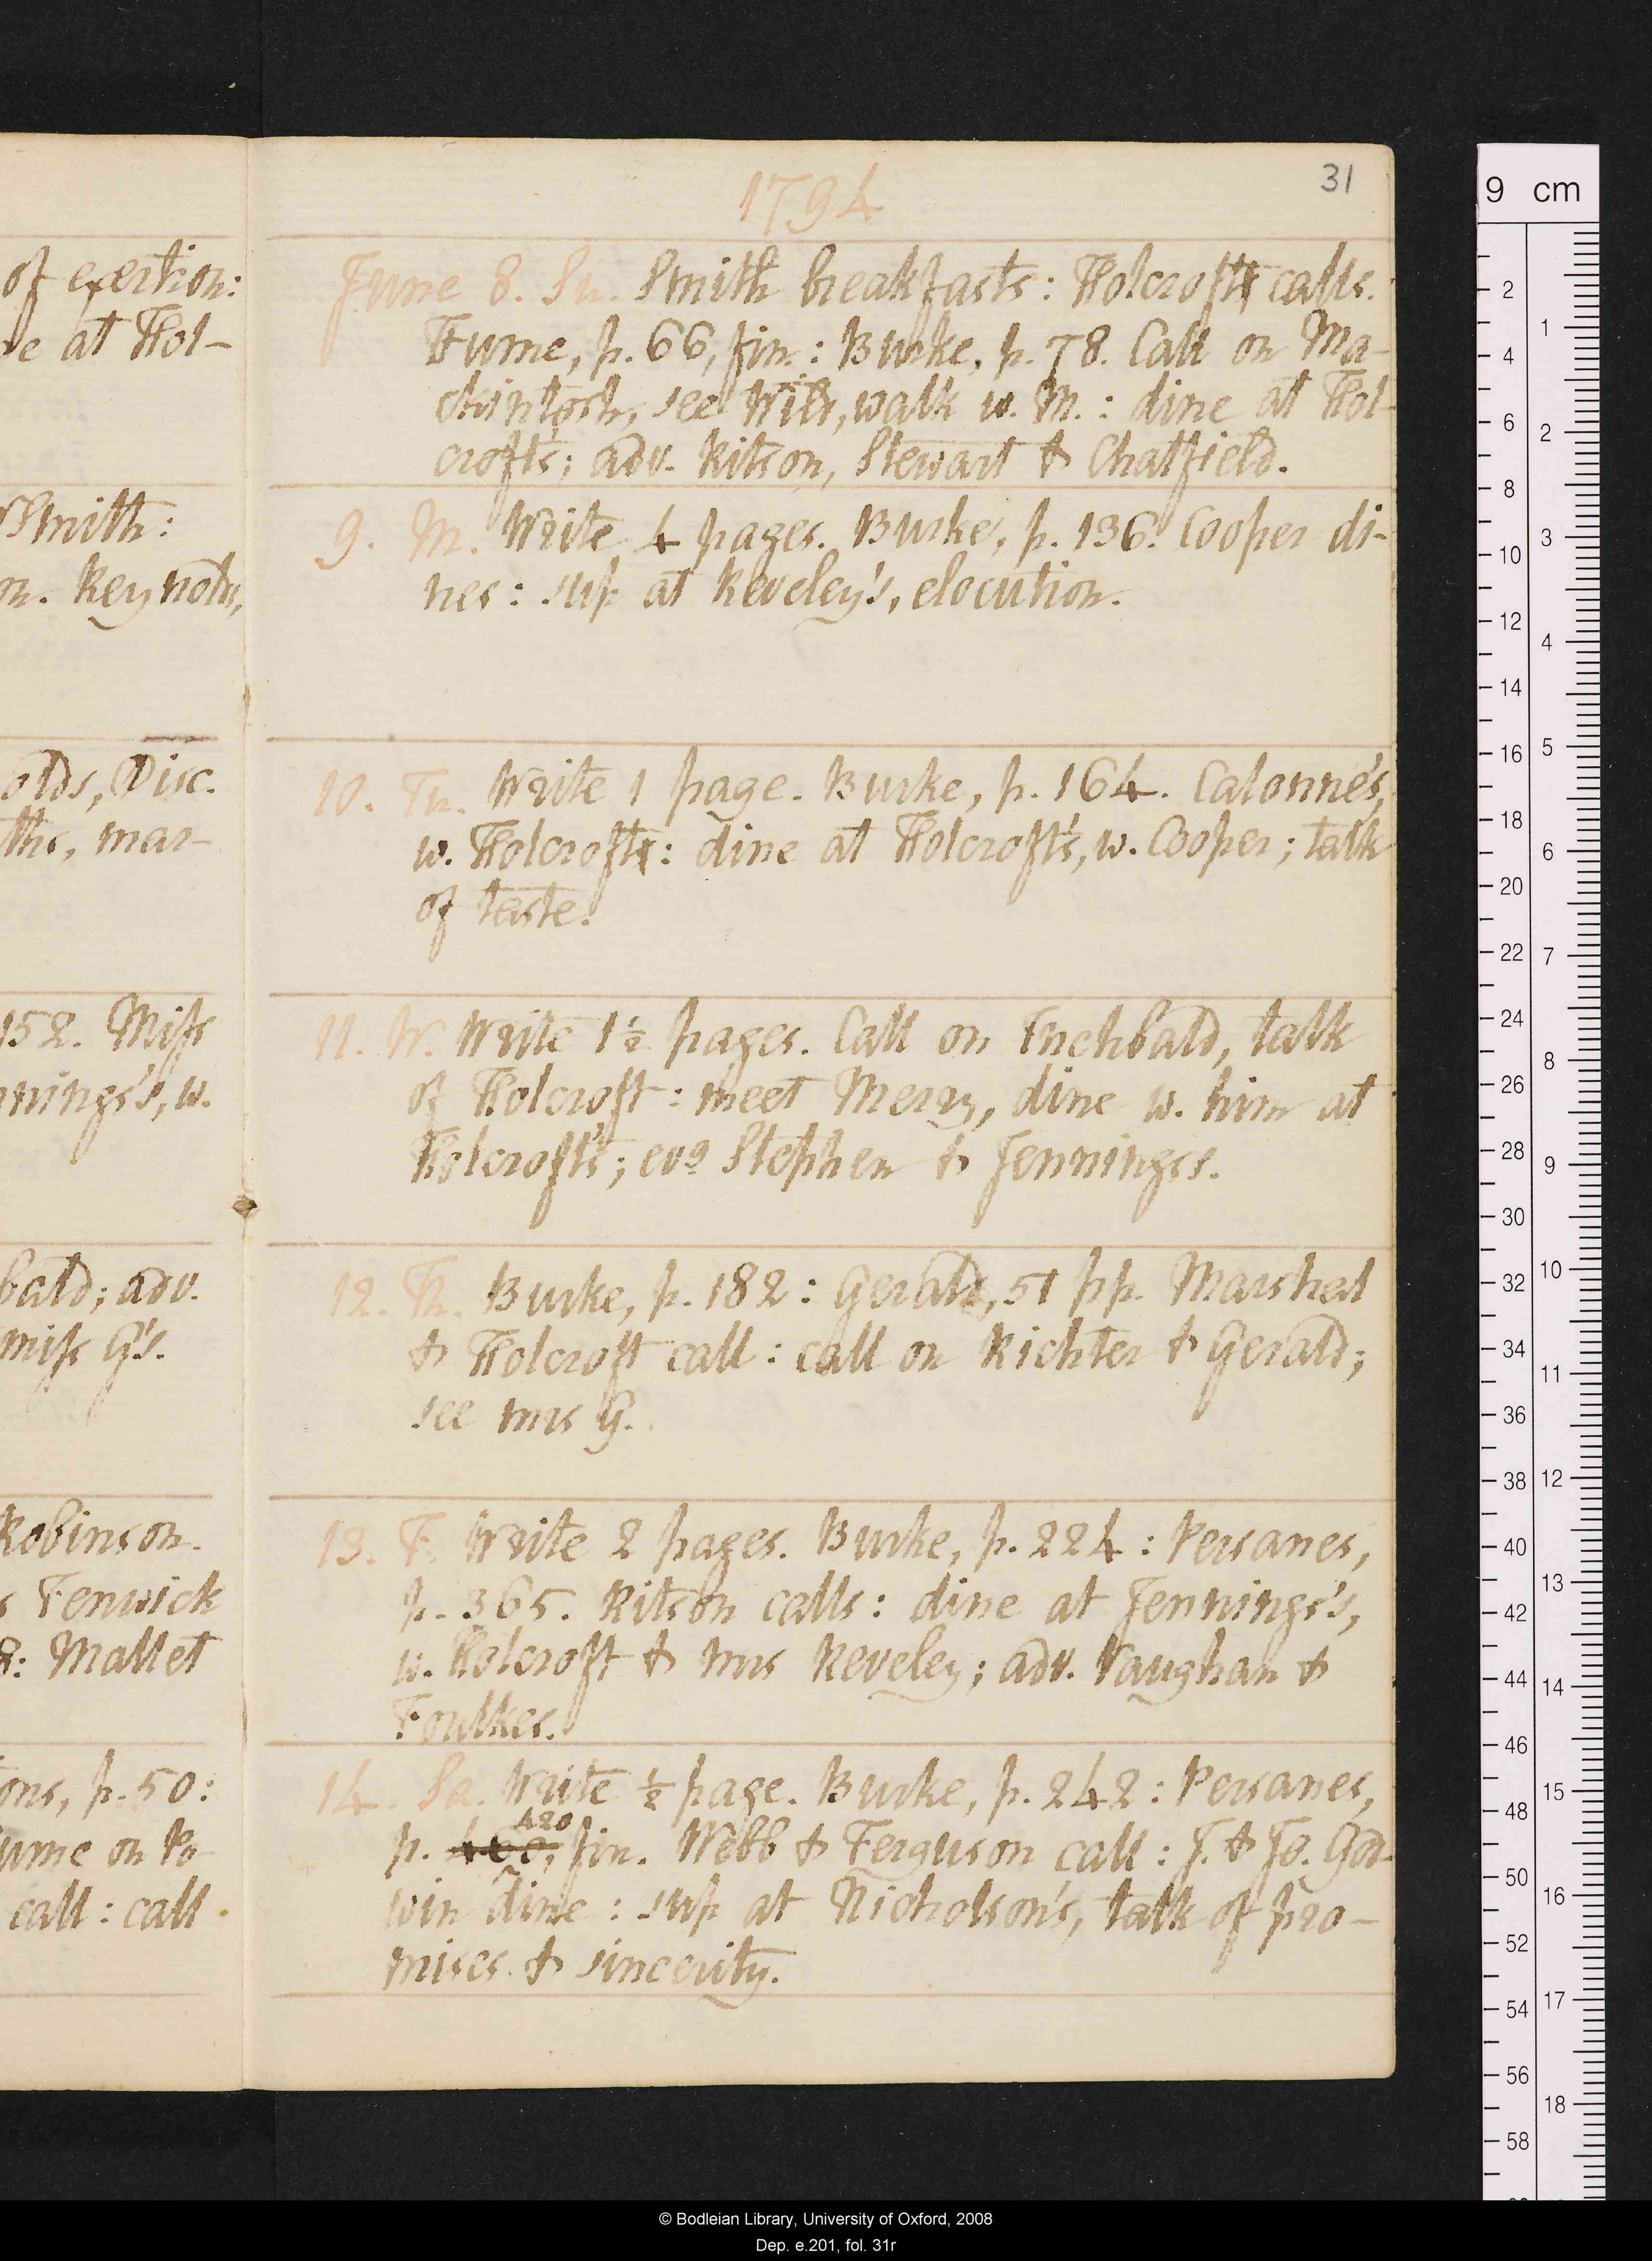 of exertion:
e at Hol-
Smith:
n. Reynolds,
olds, Disc.
ths, mar-
152. Miss
nnings's, w.
bald; adv.
miss G's.
Robinson.
s Fenwick
8: Mallet
ons, p. 50:
ume on Po-
call: call
31
1794
June 8. Su. Smith breakfasts: Holcrofts calls.
Hume, p. 66, fin.: Burke, p. 78. Call on Ma-
ckintosh, see Wilt, walk w. M.: dine at Hol-
croft's; adv. Ritson, Stewart & Chatfield.
9. M. Write 4 pages. Burke, p. 136. Cooper di-
nes: sup at Reveley's, elocution.
10. Tu. Write 1 page. Burke, p. 164. Calonne's,
w. Holcrofts: dine at Holcroft's, w. Cooper; talk
of taste.
11. W. Write 1½ pages. Call on Inchbald, talk
of Holcroft: meet Merry, dine w. him at
Holcroft's; evg Stephen & Jennings s.
12. Th. Burke, p. 182: Gerald, 51 pp. Marshal
& Holcroft call: call on Richter & Gerald;
see mrs G.
13. F. Write 2 pages. Burke, p. 224: Persanes,
p. 365. Ritson calls: dine at Jennings's,
w. Holcroft & mrs Reveley; adv. Vaughan &
Foulkes.
14. Sa. Write ½ page. Burke, p. 242: Persanes,
420
p. 400, fin. Webb & Ferguson call: J. & Jo. God-
win dine: sup at Nicholson's, talk of pro-
mises & sincerity.
9 cm
2
4
6
8
10
12
14
16
18
20
22
24
26
28
30
32
34
36
38
40
42
44
46
48
50
52
54
56
58
1
2
3
4
5
6
7
8
9
10
11
12
13
14
15
16
17
18
© Bodleian Library, University of Oxford, 2008
Dep. e.201, fol. 31r